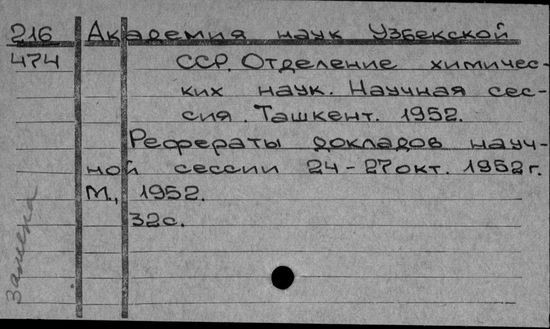 216 Академия наук Узбекской
474 ССР. Отделение химичес-
ких наук. Научная сес-
сия. Ташкент. 1952.
Рефераты докладов науч-
ной сессии 24-27 окт. 1952 г.
М., 1952.
32 с.
замена